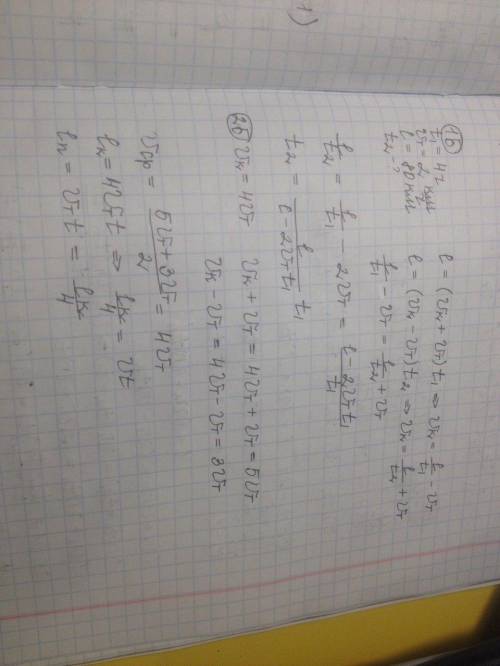 1)
1б
t₁ = 4ч
vт = 2 км/ч
l = 80 км
t₂ - ?
l = (vк + vт) t₁ ⇒ vк = l/t₁ - vт
l = (vк - vт) t₂ ⇒ vк = l/t₂ + vт
l/t₁ - vт = l/t₂ + vт
l/t₂ = l/t₁ - 2vт = (l - 2vт t₁)/t₁
t₂ = l/(l - 2vт t₁) t₁
2б vк = 4vт vк + vт = 4vт + vт = 5vт
vк - vт = 4vт - vт = 3vт
vср = (5vт + 3vт)/2 = 4vт
lк = 4vт t ⇒ lк/4 = vт t
lп = vт t = lк/4